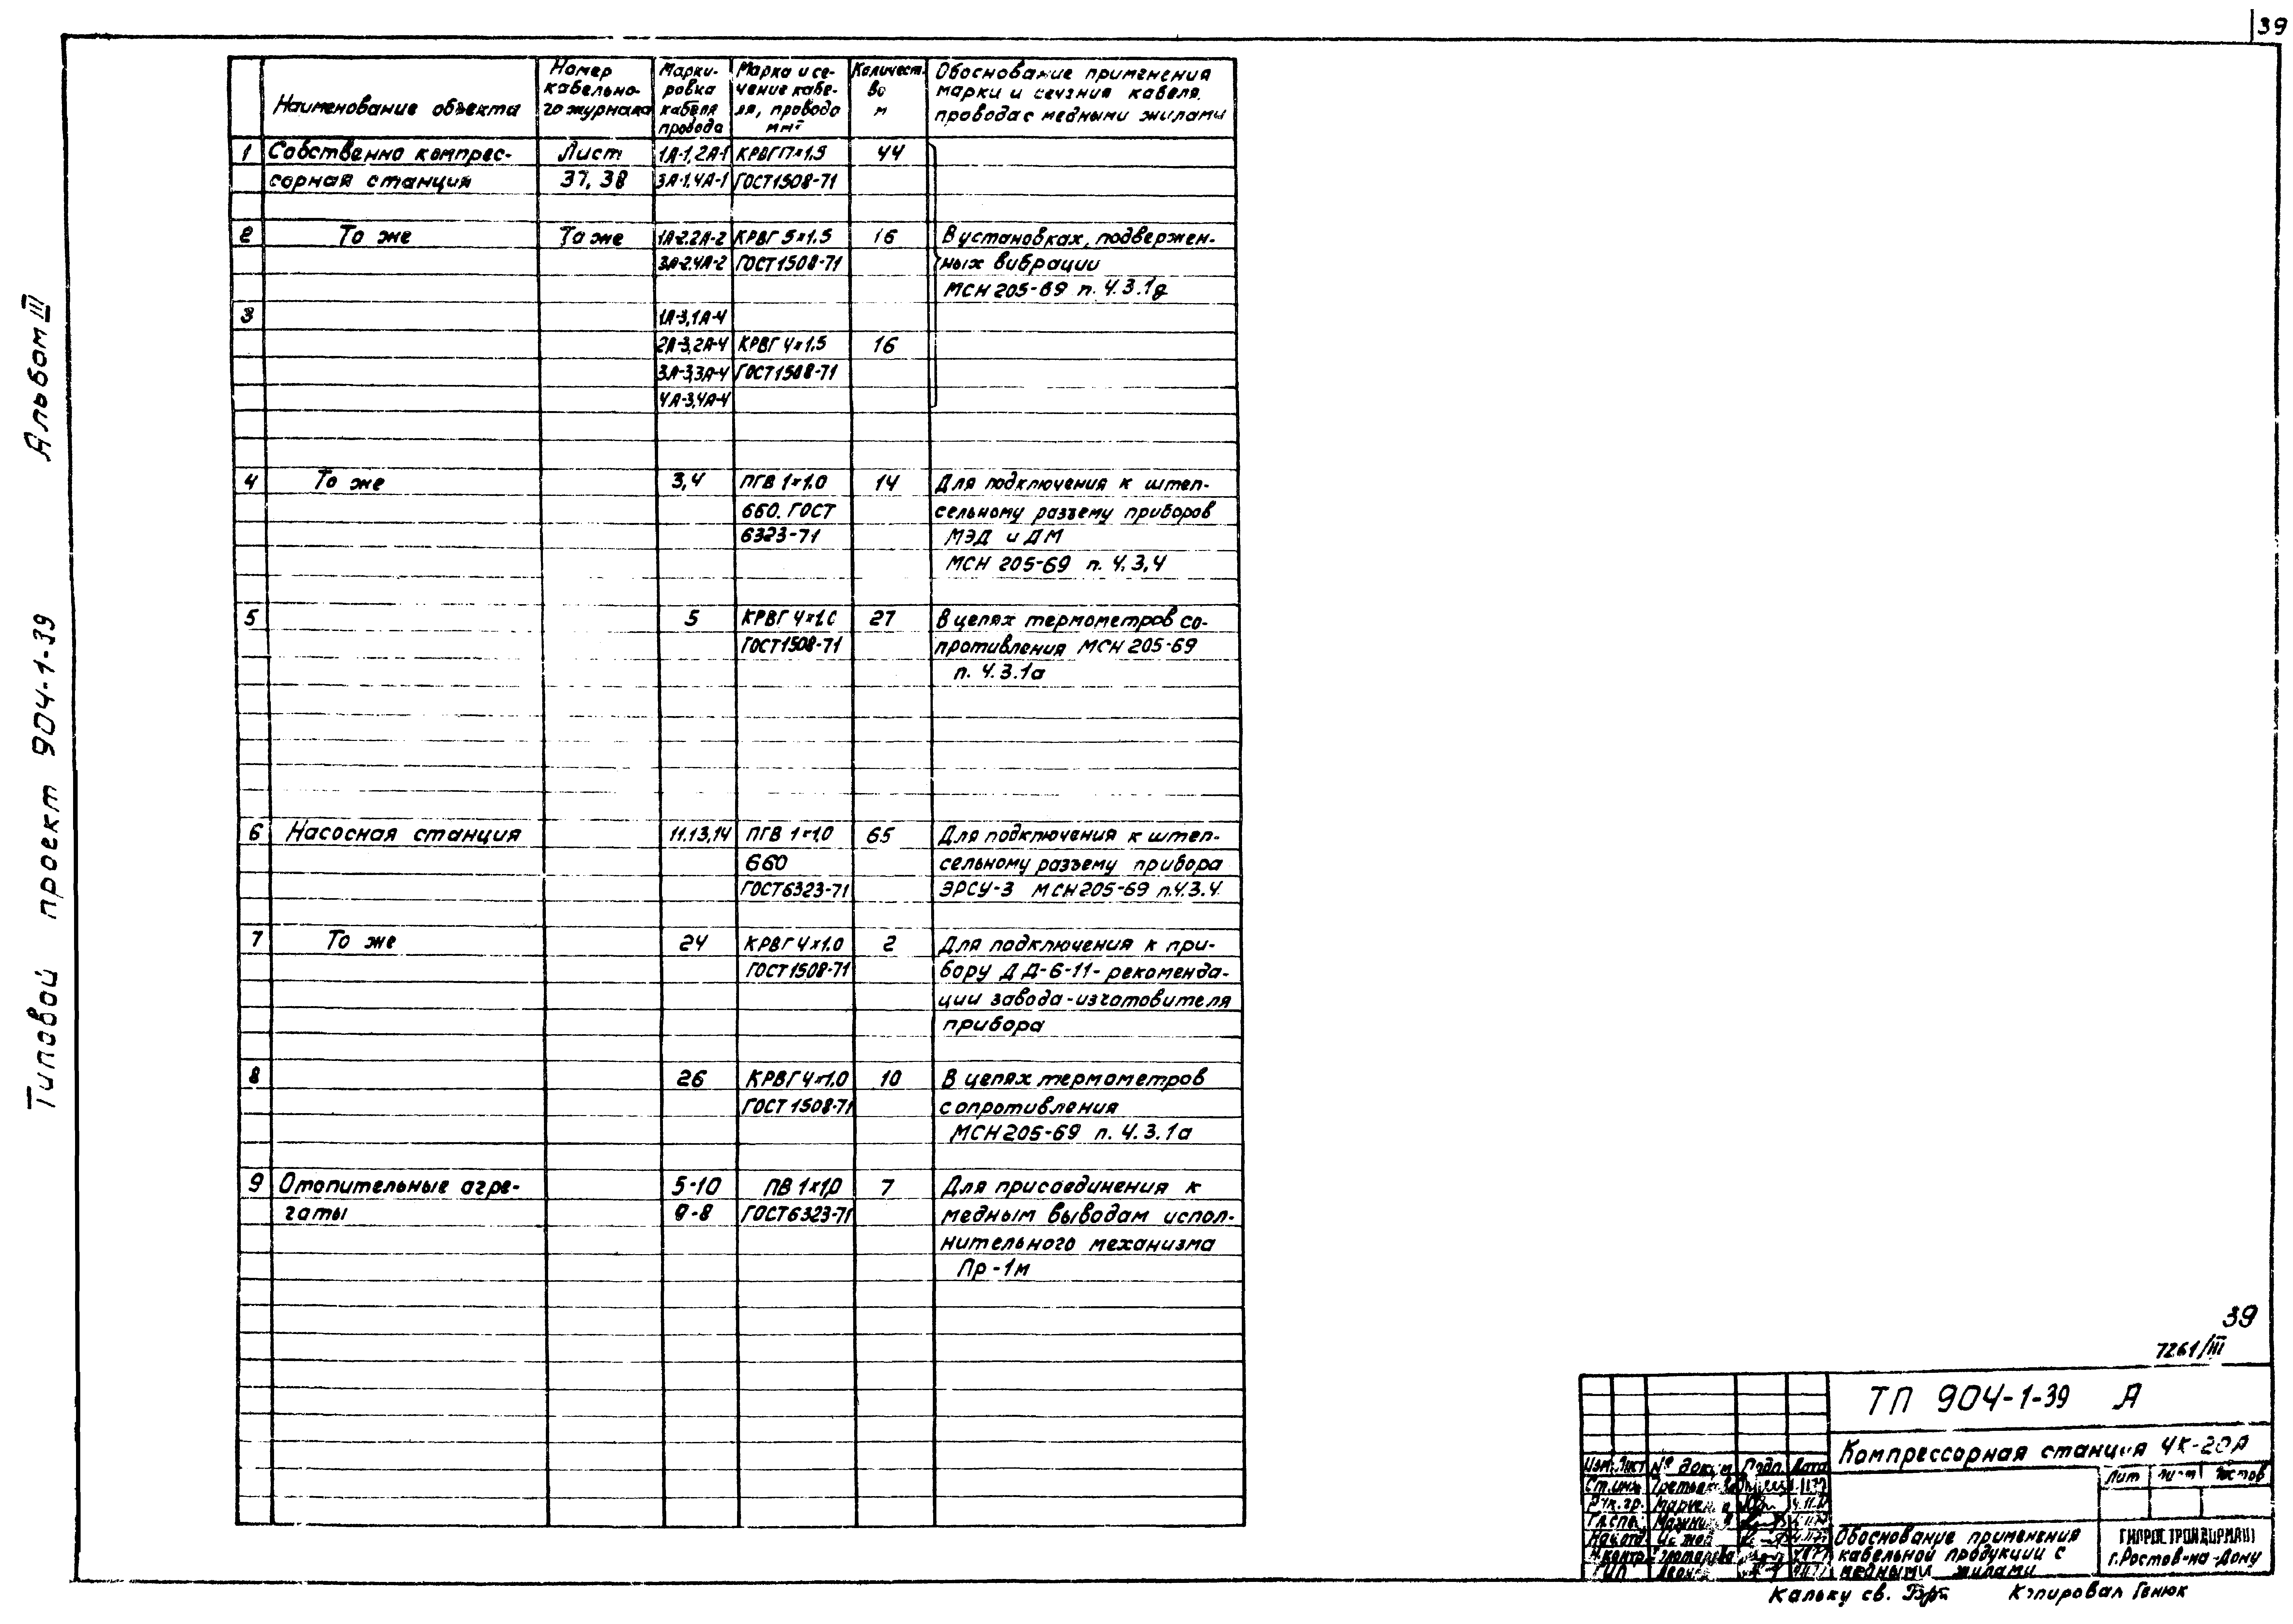 39
Альбом III
Типовой проект 904-1-39
Наименование объекта
Номер
кабельно-
го журнала
Марки-
ровка
кабеля
провода
Марка и се-
чение кабе-
ля, провода
мм²
Количест.
во
м
Обоснование применения
марки и сечения кабеля,
провода с медными жилами
1 Собственно компрес- Лист 1А-1, 2А-1 КРВГ 7×1.5 44
сорная станция 37, 38 3А-1, 4А-1 ГОСТ 1508-71
2 То же То же 1А-2, 2А-2 КРВГ 5×1.5 16 В установках, подвержен-
3А-2, 4А-2 ГОСТ 1508-71 ных вибрации
МСН 205-69 п. 4.3.1д
3 1А-3, 1А-4
2А-3, 2А-4 КРВГ 4×1.5 16
3А-3, 3А-4 ГОСТ 1508-71
4А-3, 4А-4
4 То же 3,4 ПГВ 1×1.0 14 Для подключения к штеп-
660. ГОСТ сельному разъему приборов
6323-71 МЭД и ДМ
МСН 205-69 п. 4.3.4
5 5 КРВГ 4×1.0 27 В цепях термометров со-
ГОСТ 1508-71 противления МСН 205-69
п. 4.3.1а
6 Насосная станция 11.13,14 ПГВ 1×1,0 65 Для подключения к штеп-
660 сельному разъему прибора
ГОСТ 6323-71 ЭРСУ-3 МСН 205-69 п.4.3.4
7 То же 24 КРВГ 4×1.0 2 Для подключения к при-
ГОСТ 1508-71 бору ДД-6-11- рекоменда-
ции завода-изготовителя
прибора
8 26 КРВГ 4×1.0 10 В цепях термометров
ГОСТ 1508-71 сопротивления
МСН 205-69 п. 4.3.1а
9 Отопительные агре- 5-10 ПВ 1×1,0 7 Для присоединения к
гаты 9-8 ГОСТ 6323-71 медным выводам испол-
нительного механизма
Пр-1м
39
7261/III
ТП 904-1-39 А
Компрессорная станция 4К-20А
Изм. Лист № докум. Подп. Дата
Лит Лист Листов
Ст.инж.
Рук.гр.
Гл.спец.
Нач.отд.
Н.контр.
ГИП
Обоснование применения
кабельной продукции с
медными жилами
ГИПРОСТРОЙДОРМАШ
г.Ростов-на-Дону
Кальку св. Копировал Генюк